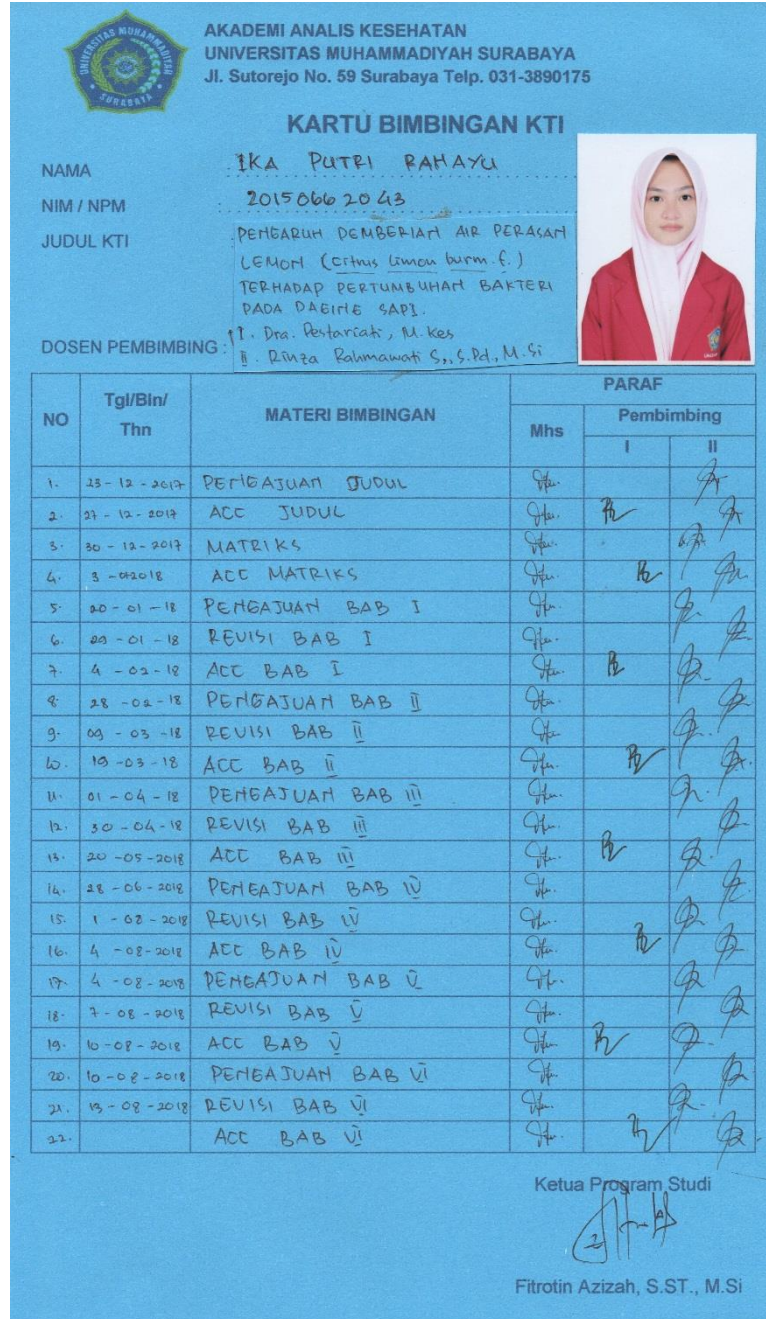 UNIVERSITAS MUHAMMADIYAH
SURABAYA
AKADEMI ANALIS KESEHATAN
UNIVERSITAS MUHAMMADIYAH SURABAYA
Jl. Sutorejo No. 59 Surabaya Telp. 031-3890175
KARTU BIMBINGAN KTI
NAMA : IKA PUTRI RAHAYU
NIM / NPM : 2015066 20 43
JUDUL KTI : PENGARUH PEMBERIAN AIR PERASAN
LEMON (Citrus limon burm. f.)
TERHADAP PERTUMBUHAN BAKTERI
PADA DAGING SAPI.
DOSEN PEMBIMBING : I. Dra. Pestariati, M. Kes
II. Rinza Rahmawati S., S.Pd., M. Si
NO Tgl/Bln/Thn MATERI BIMBINGAN PARAF
Mhs Pembimbing
I II
1. 23 - 12 - 2017 PENGAJUAN JUDUL
2. 27 - 12 - 2017 ACC JUDUL
3. 30 - 12 - 2017 MATRIKS
4. 3 2018 ACC MATRIKS
5. 20 - 01 - 18 PENGAJUAN BAB I
6. 29 - 01 - 18 REVISI BAB I
7. 4 - 02 - 18 ACC BAB I
8. 28 - 02 - 18 PENGAJUAN BAB II
9. 09 - 03 - 18 REVISI BAB II
10. 19 - 03 - 18 ACC BAB II
11. 01 - 04 - 18 PENGAJUAN BAB III
12. 30 - 04 - 18 REVISI BAB III
13. 20 - 05 - 2018 ACC BAB III
14. 28 - 06 - 2018 PENGAJUAN BAB IV
15. 1 - 08 - 2018 REVISI BAB IV
16. 4 - 08 - 2018 ACC BAB IV
17. 4 - 08 - 2018 PENGAJUAN BAB V
18. 7 - 08 - 2018 REVISI BAB V
19. 10 - 08 - 2018 ACC BAB V
20. 10 - 08 - 2018 PENGAJUAN BAB VI
21. 13 - 08 - 2018 REVISI BAB VI
22. ACC BAB VI
Ketua Program Studi
Fitrotin Azizah, S.ST., M.Si